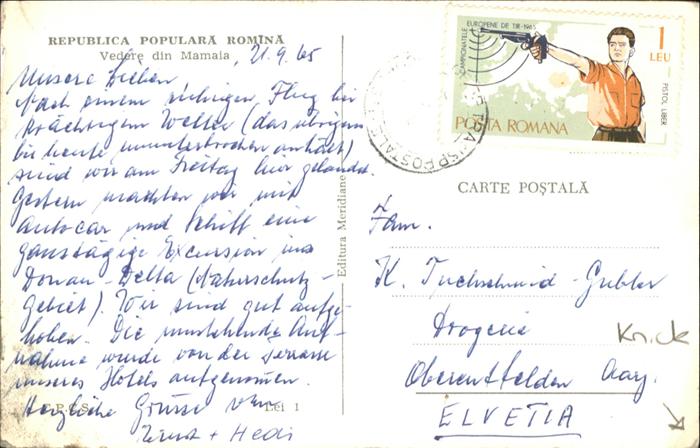 REPUBLICA POPULARĂ ROMÎNĂ
Vedere din Mamaia, 21.9.65
Unsere Lieben
Nach einem ruhigen Flug bei
prächtigem Wetter (das übrigens
bis heute ununterbrochen anhält)
sind wir am Freitag hier gelandet.
Gestern machten wir mit
Autocar und Schiff eine
ganztägige Excursion ins
Donau-Delta (Naturschutz-
Gebiet). Wir sind gut aufge-
hoben. Die umstehende Auf-
nahme wurde von der Terrasse
unseres Hotels aufgenommen.
Herzliche Grüsse von
Ernst + Hedi
Lei 1
Editura Meridiane
CAMPIONATELE EUROPENE DE TIR-1965
1
LEU
PISTOL LIBER
POSTA ROMANA
CARTE POȘTALĂ
Fam.
K. Tuchschmid-Gubler
Drogerie
Oberentfelden Aarg.
ELVETIA
Knick